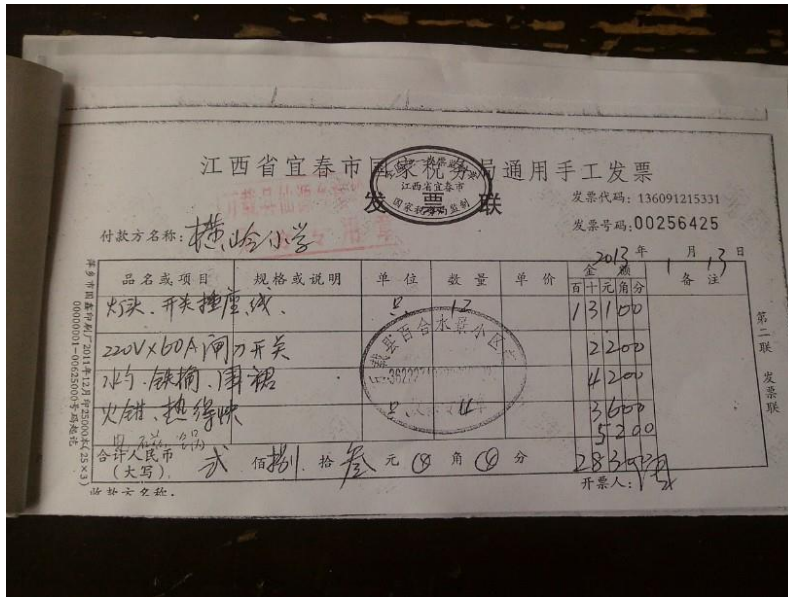 江西省宜春市国家税务局通用手工发票
江西省宜春市
国家税务局监制
发票联
发票代码: 136091215331
发票号码:00256425
付款方名称:横岭小学
2013 年 1 月 13 日
品名或项目 规格或说明 单位 数量 单价 金额 备注
百十元角分
灯头、开关插座线、 只 12 13100
220V×60A闸刀开关 2200
水勺、铁桶、围裙 4200
火钳、热得快 只 4 3600
电磁锅 5200
合计人民币(大写) 贰佰捌拾叁元 角 分 28300
收款方名称:
开票人:
第二联 发票联
萍乡市国鑫印刷厂2011年12月印25000本(25×3)
00000001-00625000号码起讫